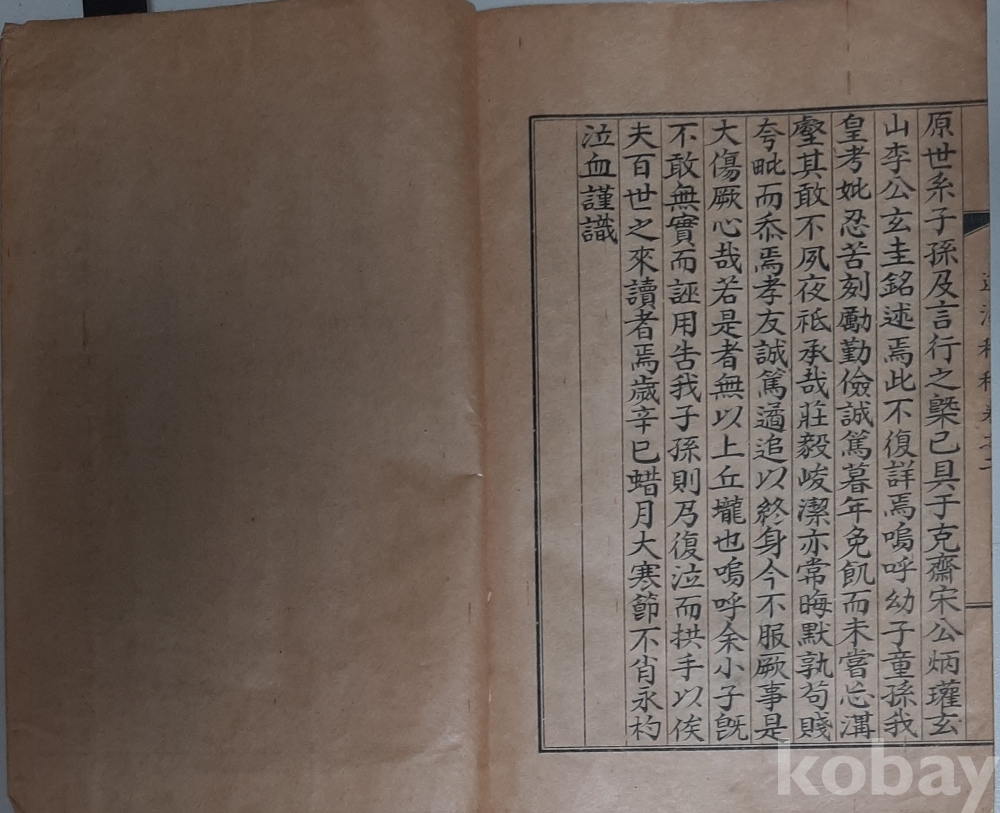 原世系子孫及言行之槩已具于克齋宋公炳瓘玄
山李公玄圭銘述焉此不復詳焉嗚呼幼子童孫我
皇考妣忍苦刻勵勤儉誠篤暮年免飢而未嘗忘溝
壑其敢不夙夜祗承哉莊毅峻潔亦常晦默孰苟賤
夸毗而忝焉孝友誠篤遹追以終身今不服厥事是
大傷厥心哉若是者無以上丘壠也嗚呼余小子旣
不敢無實而誣用告我子孫則乃復泣而拱手以俟
夫百世之來讀者焉歲辛巳蜡月大寒節不肖永杓
泣血謹識
kobay